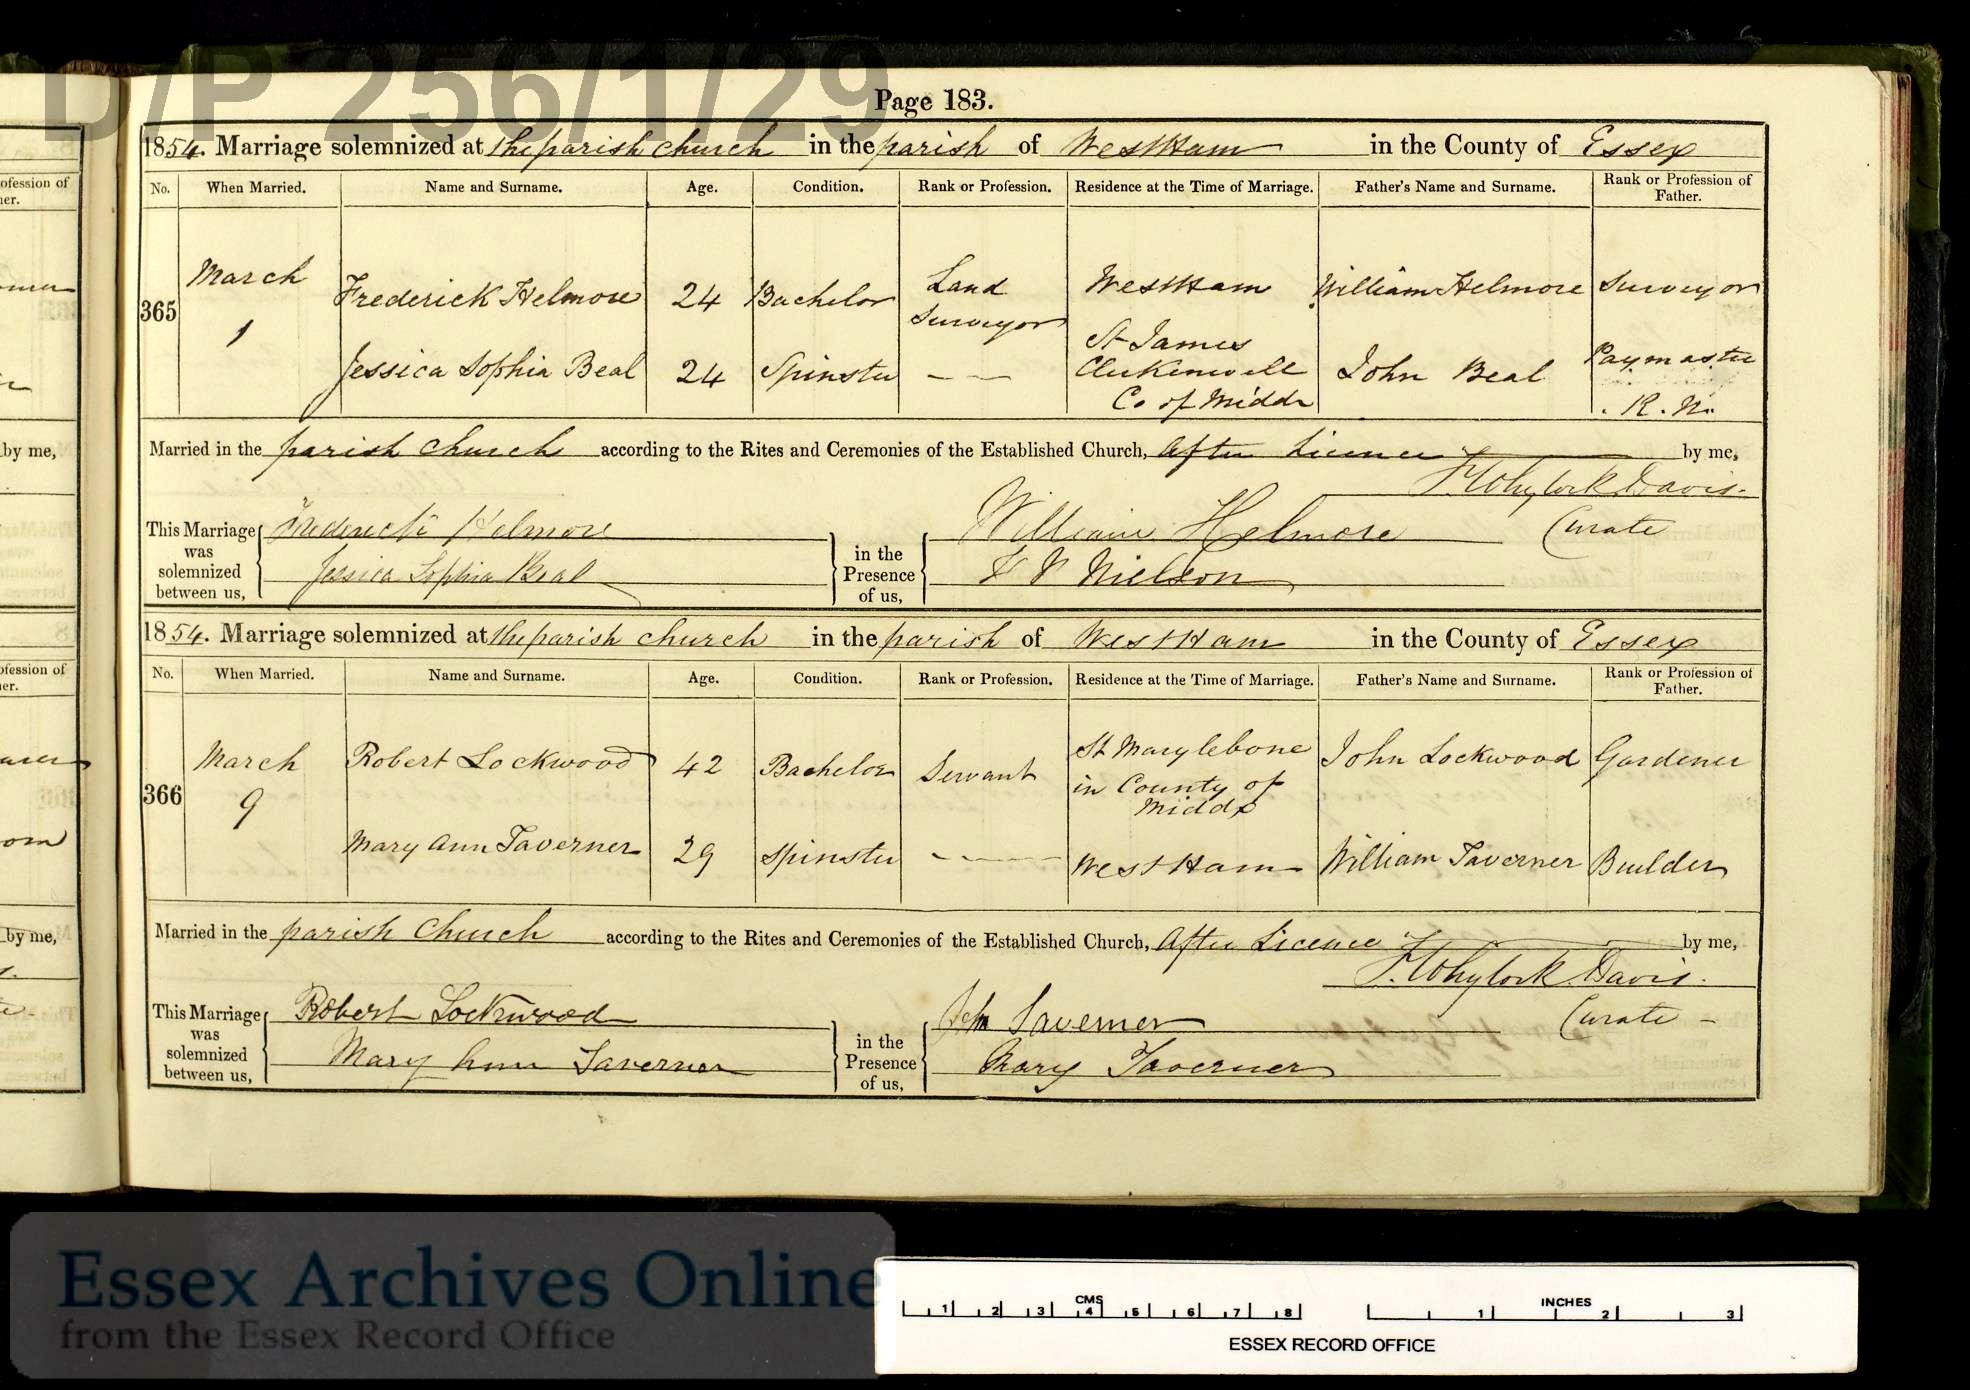 D/P 256/1/29
Page 183.
1854. Marriage solemnized at the parish church in the parish of West Ham in the County of Essex
No. When Married. Name and Surname. Age. Condition. Rank or Profession. Residence at the Time of Marriage. Father's Name and Surname. Rank or Profession of Father.
365 March 1 Frederick Helmore 24 Bachelor Land Surveyor West Ham William Helmore Surveyor
Jessica Sophia Beal 24 Spinster — — St James Clerkenwell Co of Middx John Beal Paymaster R. N.
Married in the parish church according to the Rites and Ceremonies of the Established Church, after Licence by me,
F. Whylock Davis.
Curate
This Marriage was solemnized between us, Frederick Helmore
Jessica Sophia Beal
in the Presence of us, William Helmore
Nielson
1854. Marriage solemnized at the parish church in the parish of West Ham in the County of Essex
No. When Married. Name and Surname. Age. Condition. Rank or Profession. Residence at the Time of Marriage. Father's Name and Surname. Rank or Profession of Father.
366 March 9 Robert Lockwood 42 Bachelor Servant St Marylebone in County of Middx John Lockwood Gardener
Mary Ann Taverner 29 Spinster — — West Ham William Taverner Builder
Married in the parish church according to the Rites and Ceremonies of the Established Church, after Licence by me,
F. Whylock Davis.
Curate –
This Marriage was solemnized between us, Robert Lockwood
Mary Ann Taverner
in the Presence of us, John Taverner
Mary Taverner
Essex Archives Online
from the Essex Record Office
CMS 1 2 3 4 5 6 7 8
INCHES 1 2 3
ESSEX RECORD OFFICE